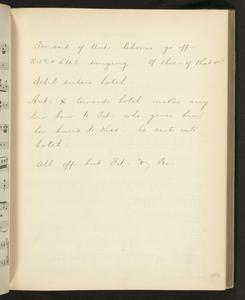 For end of Act. Chorus go off
R.U.E & L.U.E singing "Of this - of that"
Sebil enters hotel
Ant. X towards hotel makes very
low bow to Fel: who gives him
her hand to kiss. he exits into
hotel.
All off but Fel: &